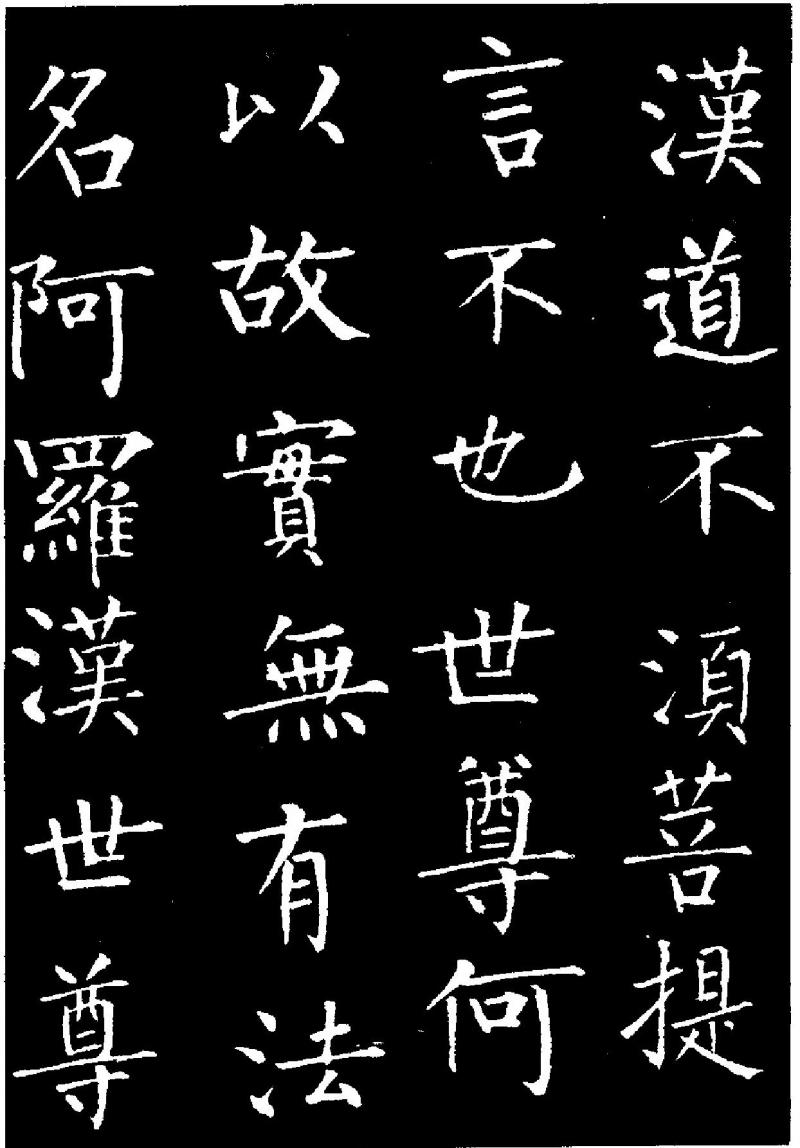 漢道不湏菩提
言不也世尊何
以故實無有法
名阿羅漢世尊